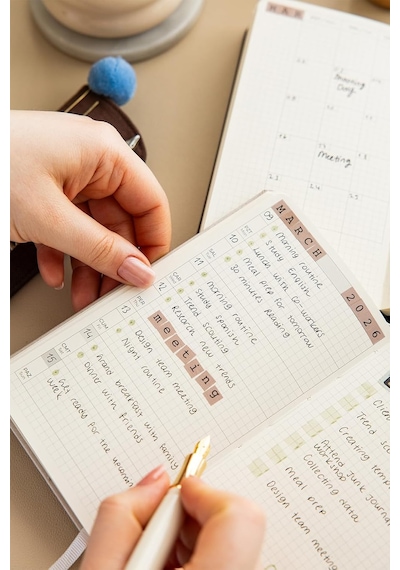 MAR
Meeting
MARCH
2026
09
Morning routine
Study English
10
Lunch with co-workers
Meal prep for tomorrow
30 minutes Reading
11
Morning routine
Study Spanish
12
Trend Scouting
Research new trends
meeting
13
Design team meeting
Night routine
14
breakfast with family
Dinner with friends
15
Get ready for the upcoming
week
Client
Trend sco
Creating temp
Attend junk journa
workshop
Collecting data
Meal prep
Design team meeting